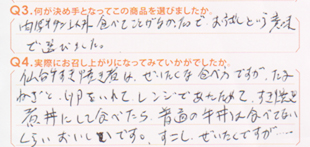 Q3.何が決め手となってこの商品を選びましたか。
肉厚牛タン以外食べたことがなかったので お試しという意味
で選びました。
Q4.実際にお召し上がりになってみていかがでしたか。
仙台牛すき焼き煮は、ぜいたくな食べ方ですが、たま
ねぎと、卵をいれて、レンジであたためて、すき焼き
煮丼にして食べたら、普通の牛丼は食べれない
くらいおいしいです。すこし、ぜいたくですが…